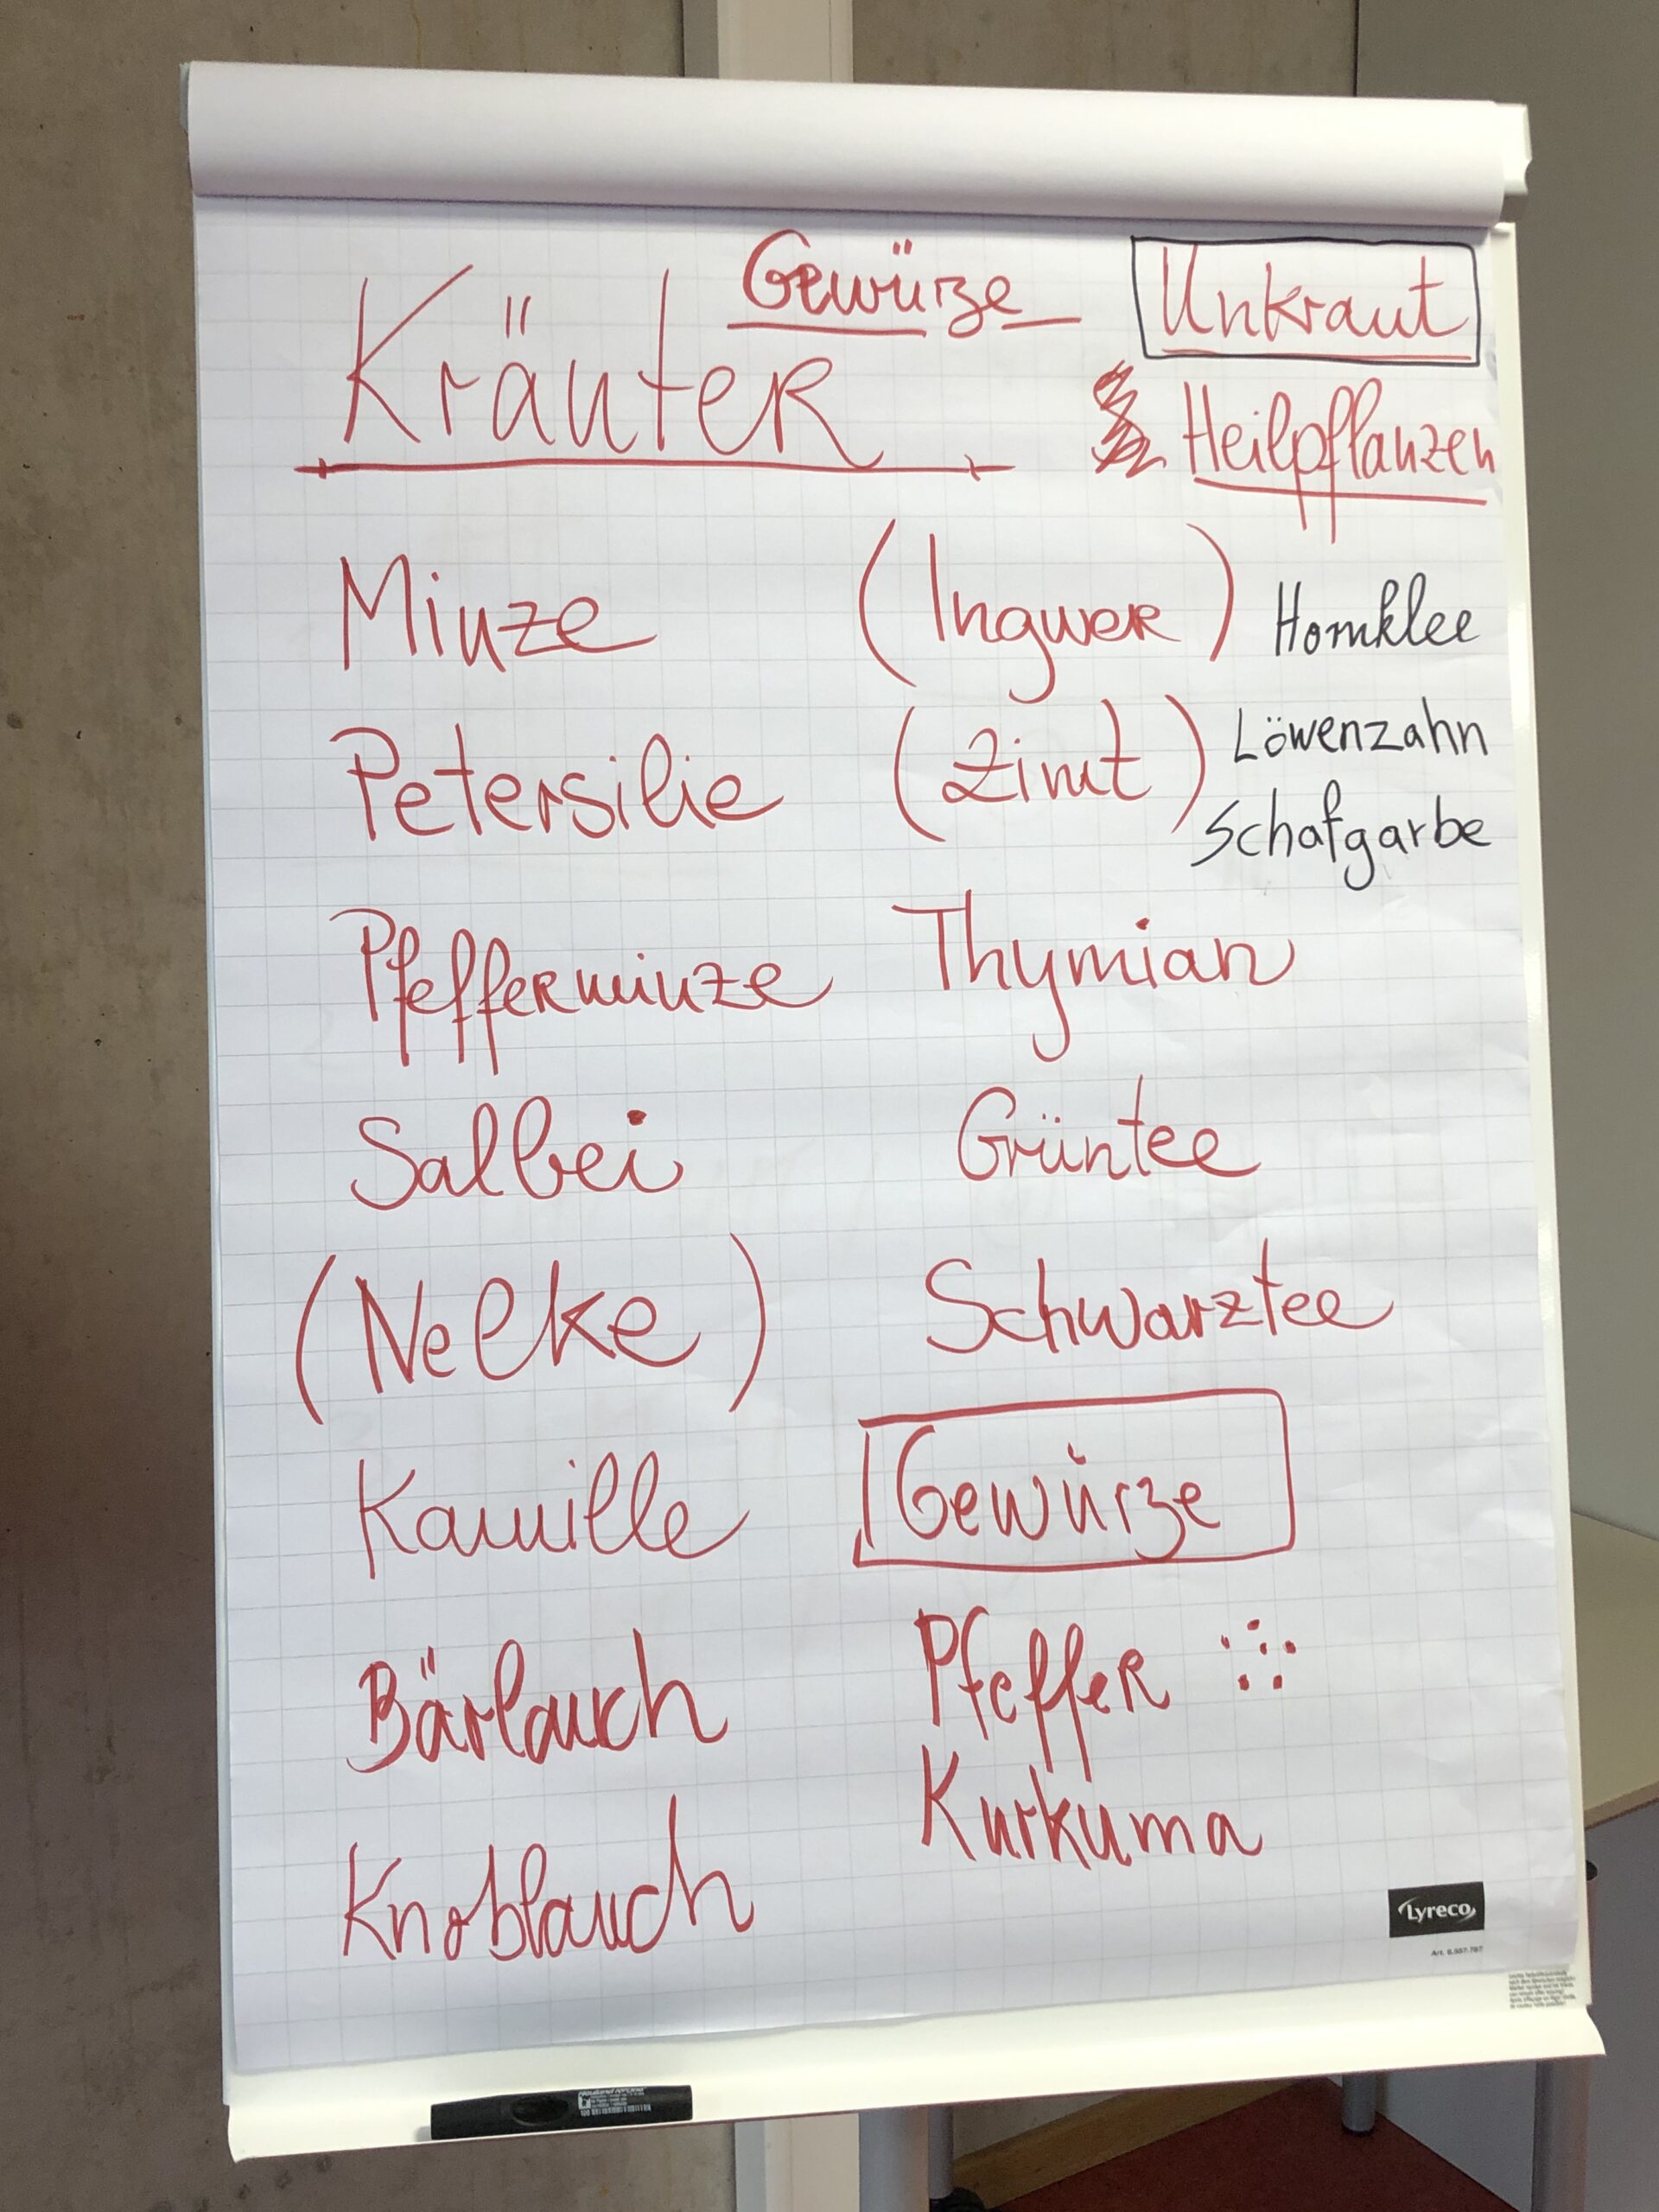 Gewürze
Unkraut
Kräuter
Heilpflanzen
Minze
(Ingwer)
Hornklee
Petersilie
(Zimt)
Löwenzahn
Schafgarbe
Pfefferminze
Thymian
Salbei
Grüntee
(Nelke)
Schwarztee
Kamille
Gewürze
Bärlauch
Pfeffer
Kurkuma
Knoblauch
Lyreco
Art. 6.557.787